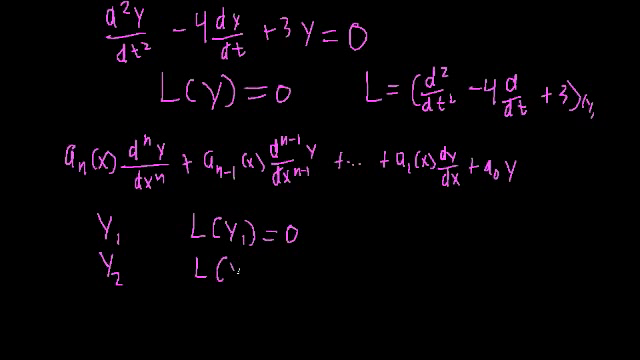 d²y/dt² - 4 dy/dt + 3y = 0
L(y) = 0 L = (d²/dt² - 4 d/dt + 3)(y)
aₙ(x) dⁿy/dxⁿ + aₙ₋₁(x) dⁿ⁻¹y/dxⁿ⁻¹ + ... + a₁(x) dy/dx + a₀ y
y₁ L(y₁) = 0
y₂ L(